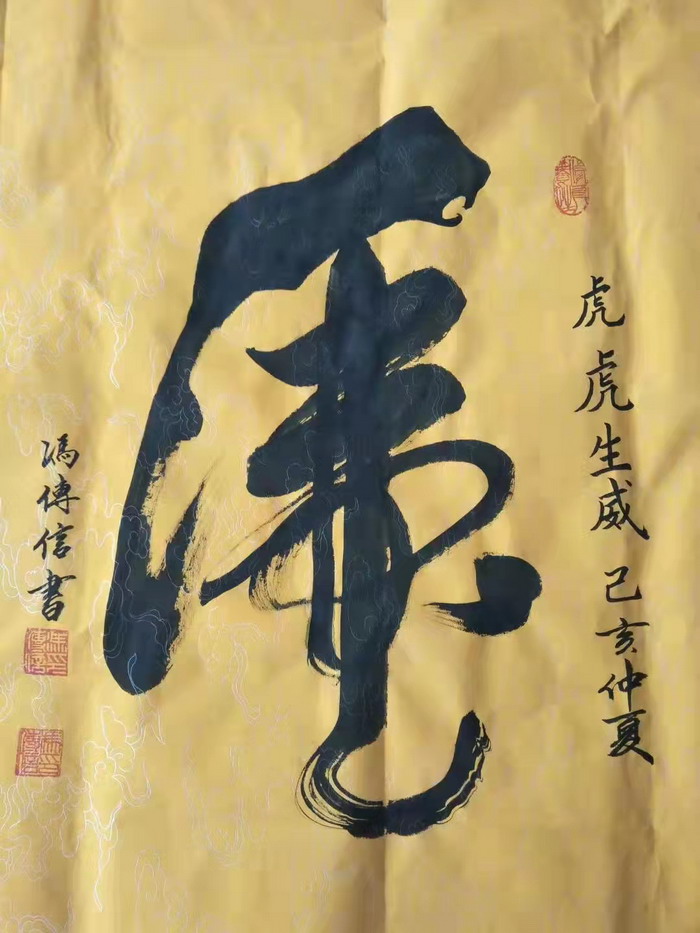 虎虎生威 己亥仲夏
虎
馮傳信書